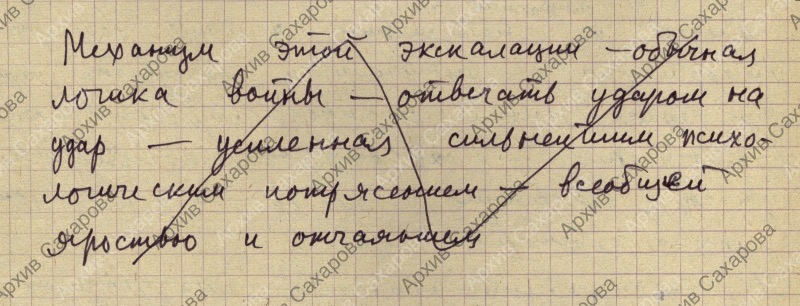 Механизм этой эскалации – обычная
логика войны – отвечать ударом на
удар – усиленная сильнейшим психо-
логическим потрясением – всеобщей
яростью и отчаянием